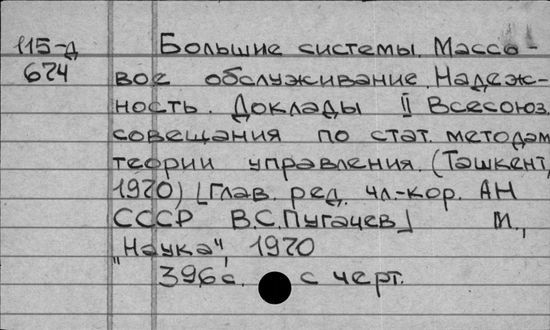 115-д Большие системы. Массо-
674 вое обслуживание. Надеж-
ность. Доклады II Всесоюз.
совещания по стат. методам
теории управления. (Ташкент,
1970) [Глав. ред. чл.-кор. АН
СССР В.С. Пугачев] М.,
"Наука", 1970
396 с. с черт.